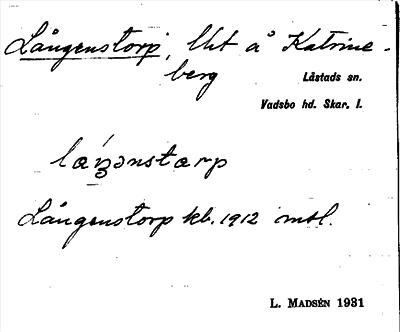 Långenstorp, lht å Katrine-
berg
Låstads sn.
Vadsbo hd. Skar. l.
Långenstorp kb. 1912 mtl.
L. MADSÉN 1931